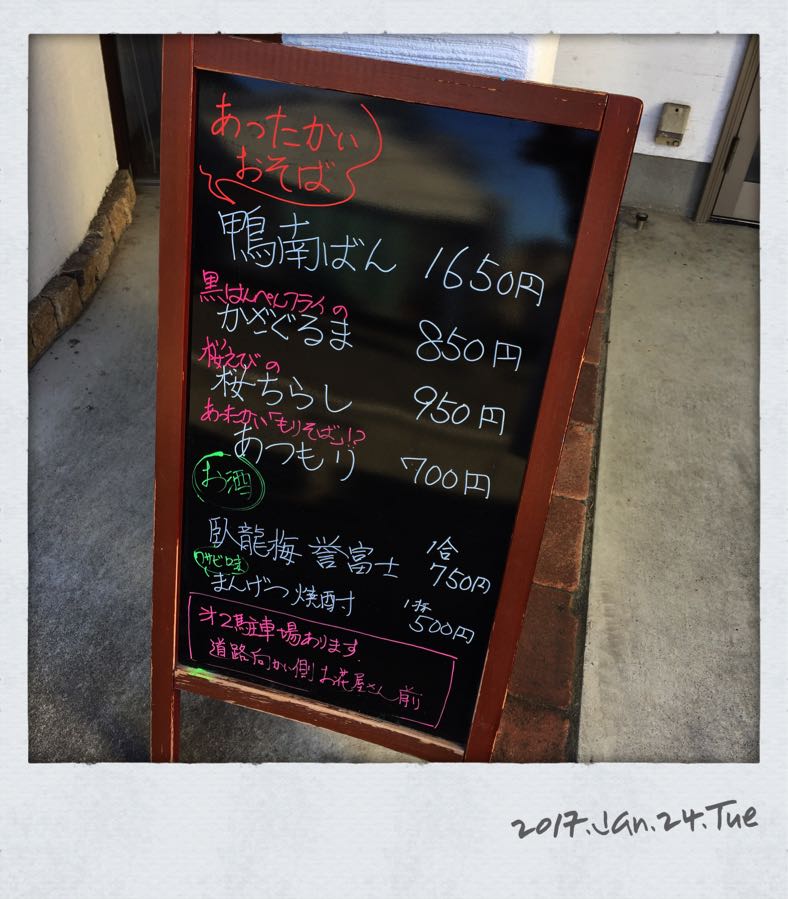 あったかい
おそば
鴨南ばん 1650円
黒はんぺんフライの
かざぐるま 850円
桜えびの
桜ちらし 950円
あったかい「もりそば」!?
あつもり 700円
お酒
臥龍梅 誉富士 1合 750円
ワサビ味
まんげつ焼酎 1杯 500円
オ2駐車場あります
道路向かい側お花屋さん前
2017.Jan.24.Tue